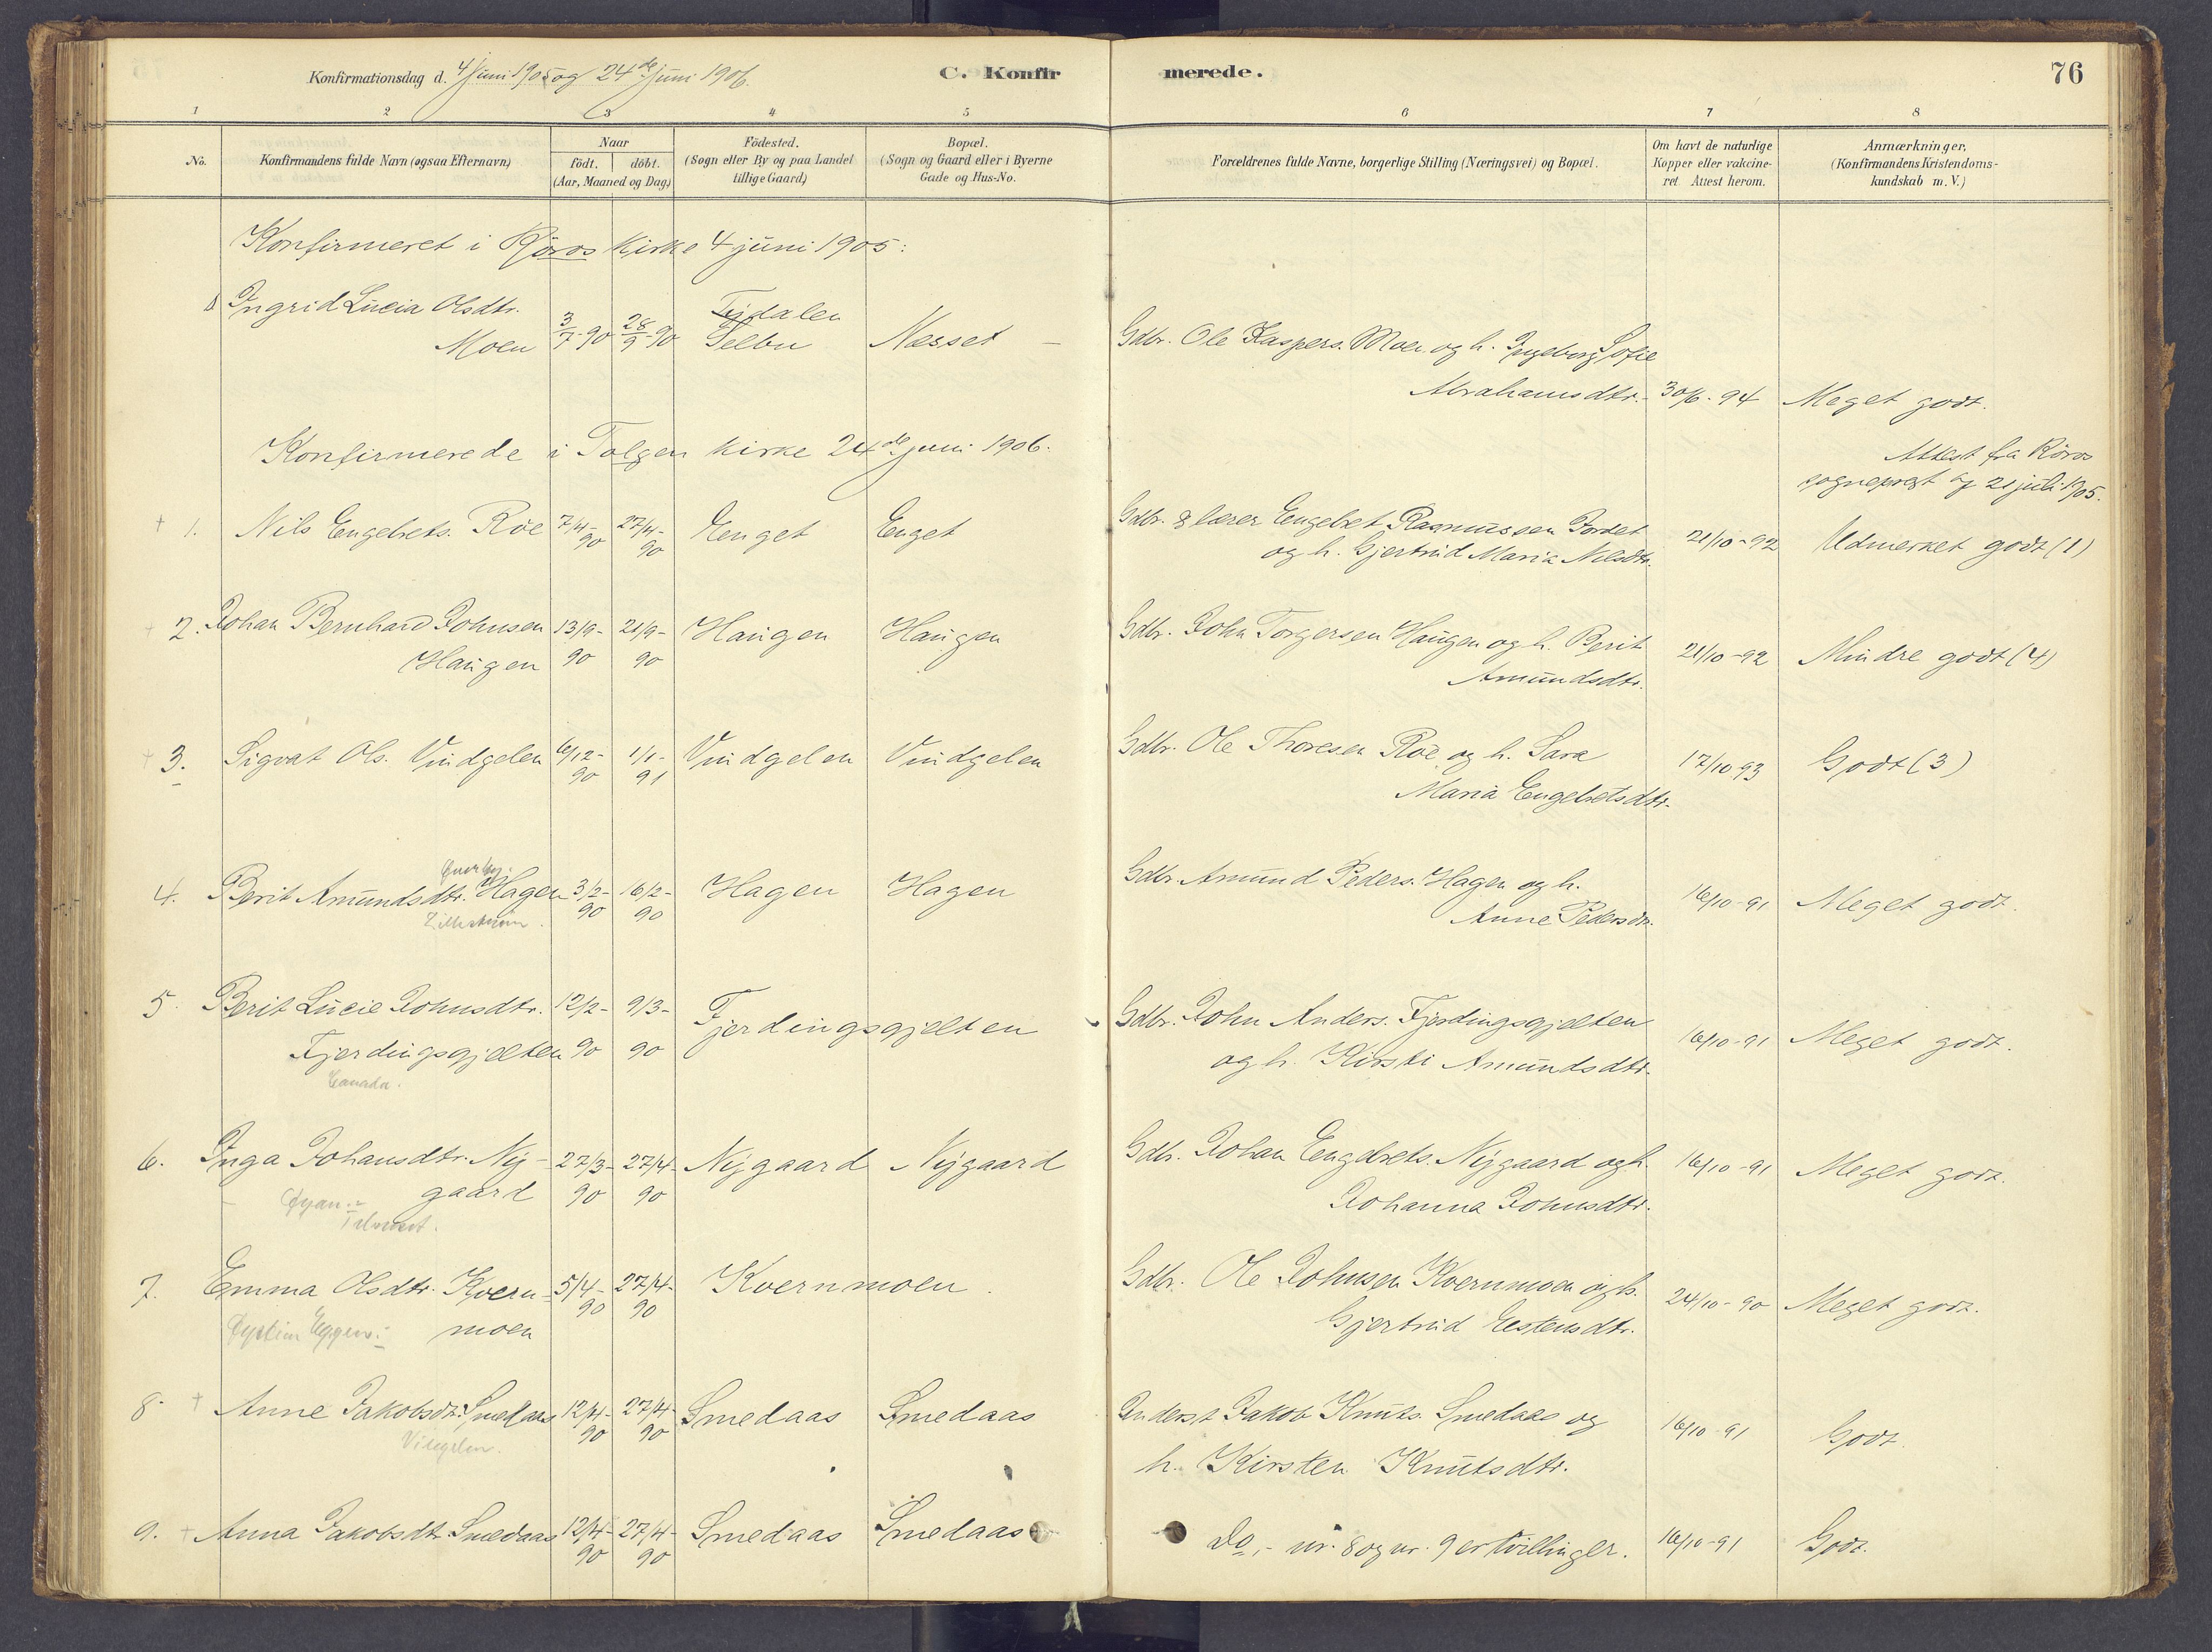 Konfirmationsdag d. 4 juni 1905 og 24de juni 1906.
C. Konfirmerede.
76
1 2 3 4 5 6 7 8
No.
Konfirmandens fulde Navn (ogsaa Efternavn)
Naar
födt. döbt.
(Aar, Maaned og Dag)
Födested.
(Sogn eller By og paa Landet
tillige Gaard)
Bopæl.
(Sogn og Gaard eller i Byerne
Gade og Hus-No.
Forældrenes fulde Navne, borgerlige Stilling (Næringsvei) og Bopæl.
Om havt de naturlige
Kopper eller vakcine-
ret. Attest herom.
Anmærkninger,
(Konfirmandens Kristendoms-
kundskab m. V.)
Konfirmeret i Röros Kirke 4 juni 1905:
Ingrid Lucia Olsdtr.
Moen
3/7-90 28/9-90
Tydalen
Selbu
Næsset
Gdbr. Ole Kaspers. Moen og h. Ingeborg Sofie
Abrahamsdtr.
30/6-94
Meget godt.
Attest fra Röros
sogneprest af 21 juli 1905.
Konfirmerede i Tolgen kirke 24de juni 1906.
1. Nils Engebrets. Röe 7/4-90 27/4-90 Enget Enget
Gdbr. & lærer Engebret Rasmussen Fordet
og h. Gjertrud Maria Nilsdtr.
21/10-92 Udmerket godt (1)
2. Johan Bernhard Johnsen
Haugen
13/9-90 21/9-90 Haugen Haugen
Gdbr. John Torgersen Haugen og h. Berit
Amundsdtr.
21/10-92 Mindre godt (4)
3. Sigvat Ols. Vindgelen 6/12-90 1/1-91 Vindgelen Vindgelen
Gdbr. Ole Thoresen Röe og h. Sara
Maria Engebretsdtr.
17/10 93 Godt (3)
4. Berit Amundsdtr. Hagen 3/2-90 16/2-90 Hagen Hagen
Gdbr. Amund Peders. Hagen og h.
Anne Pedersdtr.
16/10-91 Meget godt.
5. Berit Lucie Johnsdtr.
Fjerdingsgjelten
Canada.
12/2-90 9/3-90
Fjerdingsgjelten
Gdbr. John Anders. Fjerdingsgjelten
og h. Kirsti Amundsdtr.
16/10-91 Meget godt.
6. Inga Johansdtr. Ny-
gaard
27/3-90 27/4-90 Nygaard Nygaard
Gdbr. Johan Engebrets. Nygaard og h.
Johanna Johnsdtr.
16/10-91 Meget godt.
7. Emma Olsdtr. Kvern-
moen
5/4-90 27/4-90 Kvernmoen.
Gdbr. Ole Johnsen Kvernmoen og h.
Gjertrud Estensdtr.
24/10-90 Meget godt.
8. Anne Jakobsdtr. Smedaas
Vingelen.
12/4-90 27/4-90 Smedaas Smedaas
Inderst Jakob Knuts. Smedaas og
h. Kirsten Knutsdtr.
16/10-91 Godt.
9. Anna Jakobsdtr. Smedaas 12/4-90 27/4-90 Smedaas Smedaas
Do,- nr. 8 og nr. 9 er tvillinger.
16/10-91 Godt.